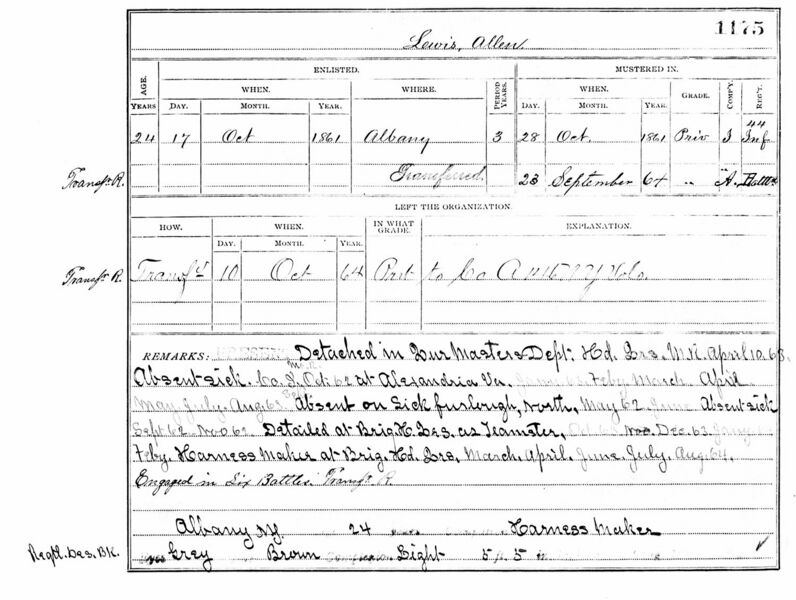 1175
Lewis, Allen.
AGE. ENLISTED. MUSTERED IN.
WHEN. WHERE. PERIOD YEARS. WHEN. GRADE. COMP'Y. REG'T.
YEARS DAY. MONTH. YEAR. DAY. MONTH. YEAR.
44
24 17 Oct 1861 Albany 3 28 Oct. 1861 Priv I Inf
Transf. R. Transferred. 23 September 64 " A.
LEFT THE ORGANIZATION.
HOW. WHEN. IN WHAT GRADE. EXPLANATION.
DAY. MONTH. YEAR.
Transf. R. Transf'd 10 Oct 64 to Co A 146 N Y Vols.
REMARKS: PRESENT Detached in Qur Masters Dept. Hd. Qrs. April 10. 63.
Absent sick. Oct. 62 at Alexandria Va. Feby. March April
May. July. Aug. 63 Absent on Sick furlough, North, May 62 June Absent sick
Sept 62 Nov 62 Detailed at Brig H. Qrs. as Teamster, Oct 63 Nov. Dec. 63.
Feby. Harness Maker at Brig. Hd. Qrs. March. April. June. July. Aug. 64.
Engaged in Six Battles. Transf. R.
Albany NY. 24 Harness Maker
Regtl. Des. BK. Grey Brown Light 5 5